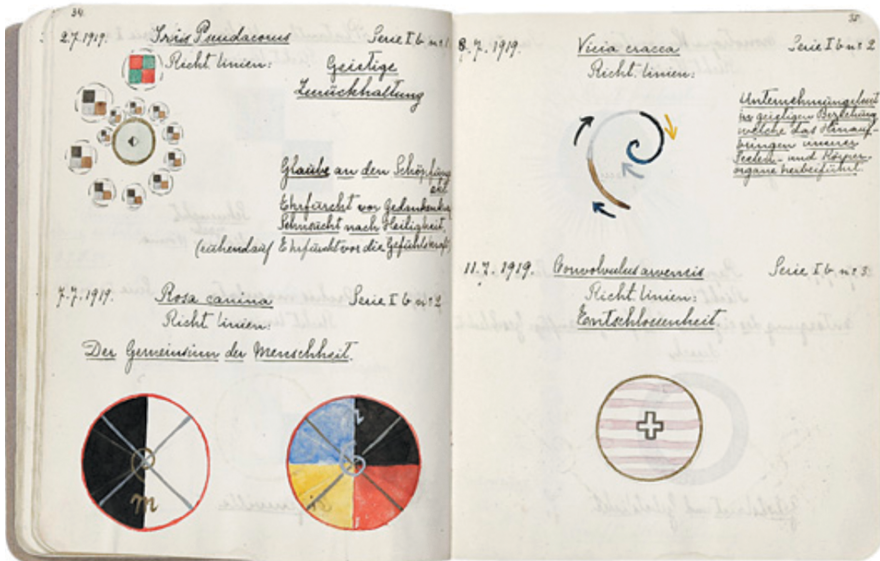 34.
2.7.1919. Iris Pseudacorus Serie I b. nr. 1
Richt linien:
Geistige
Zurückhaltung
Glaube an den Schöpfung
Ehrfurcht vor Gedanken
Sehnsucht nach Heiligkeit,
(ruhend auf Ehrfurcht vor die Gefühlskraft)
7.7.1919. Rosa canina Serie I b nr. 2
Richt linien:
Der Gemeinsinn der Menschheit.
m
35.
8.7.1919. Vicia cracca Serie I b nr 2
Richt linien:
Unternehmungslust
in geistigen Beziehung
welche das Hinauf-
bringen unserer
Seelen- und Körper-
organe herbeiführt.
11.7.1919. Convolvulus arvensis Serie I b. nr. 3.
Richt linien:
Entschlossenheit